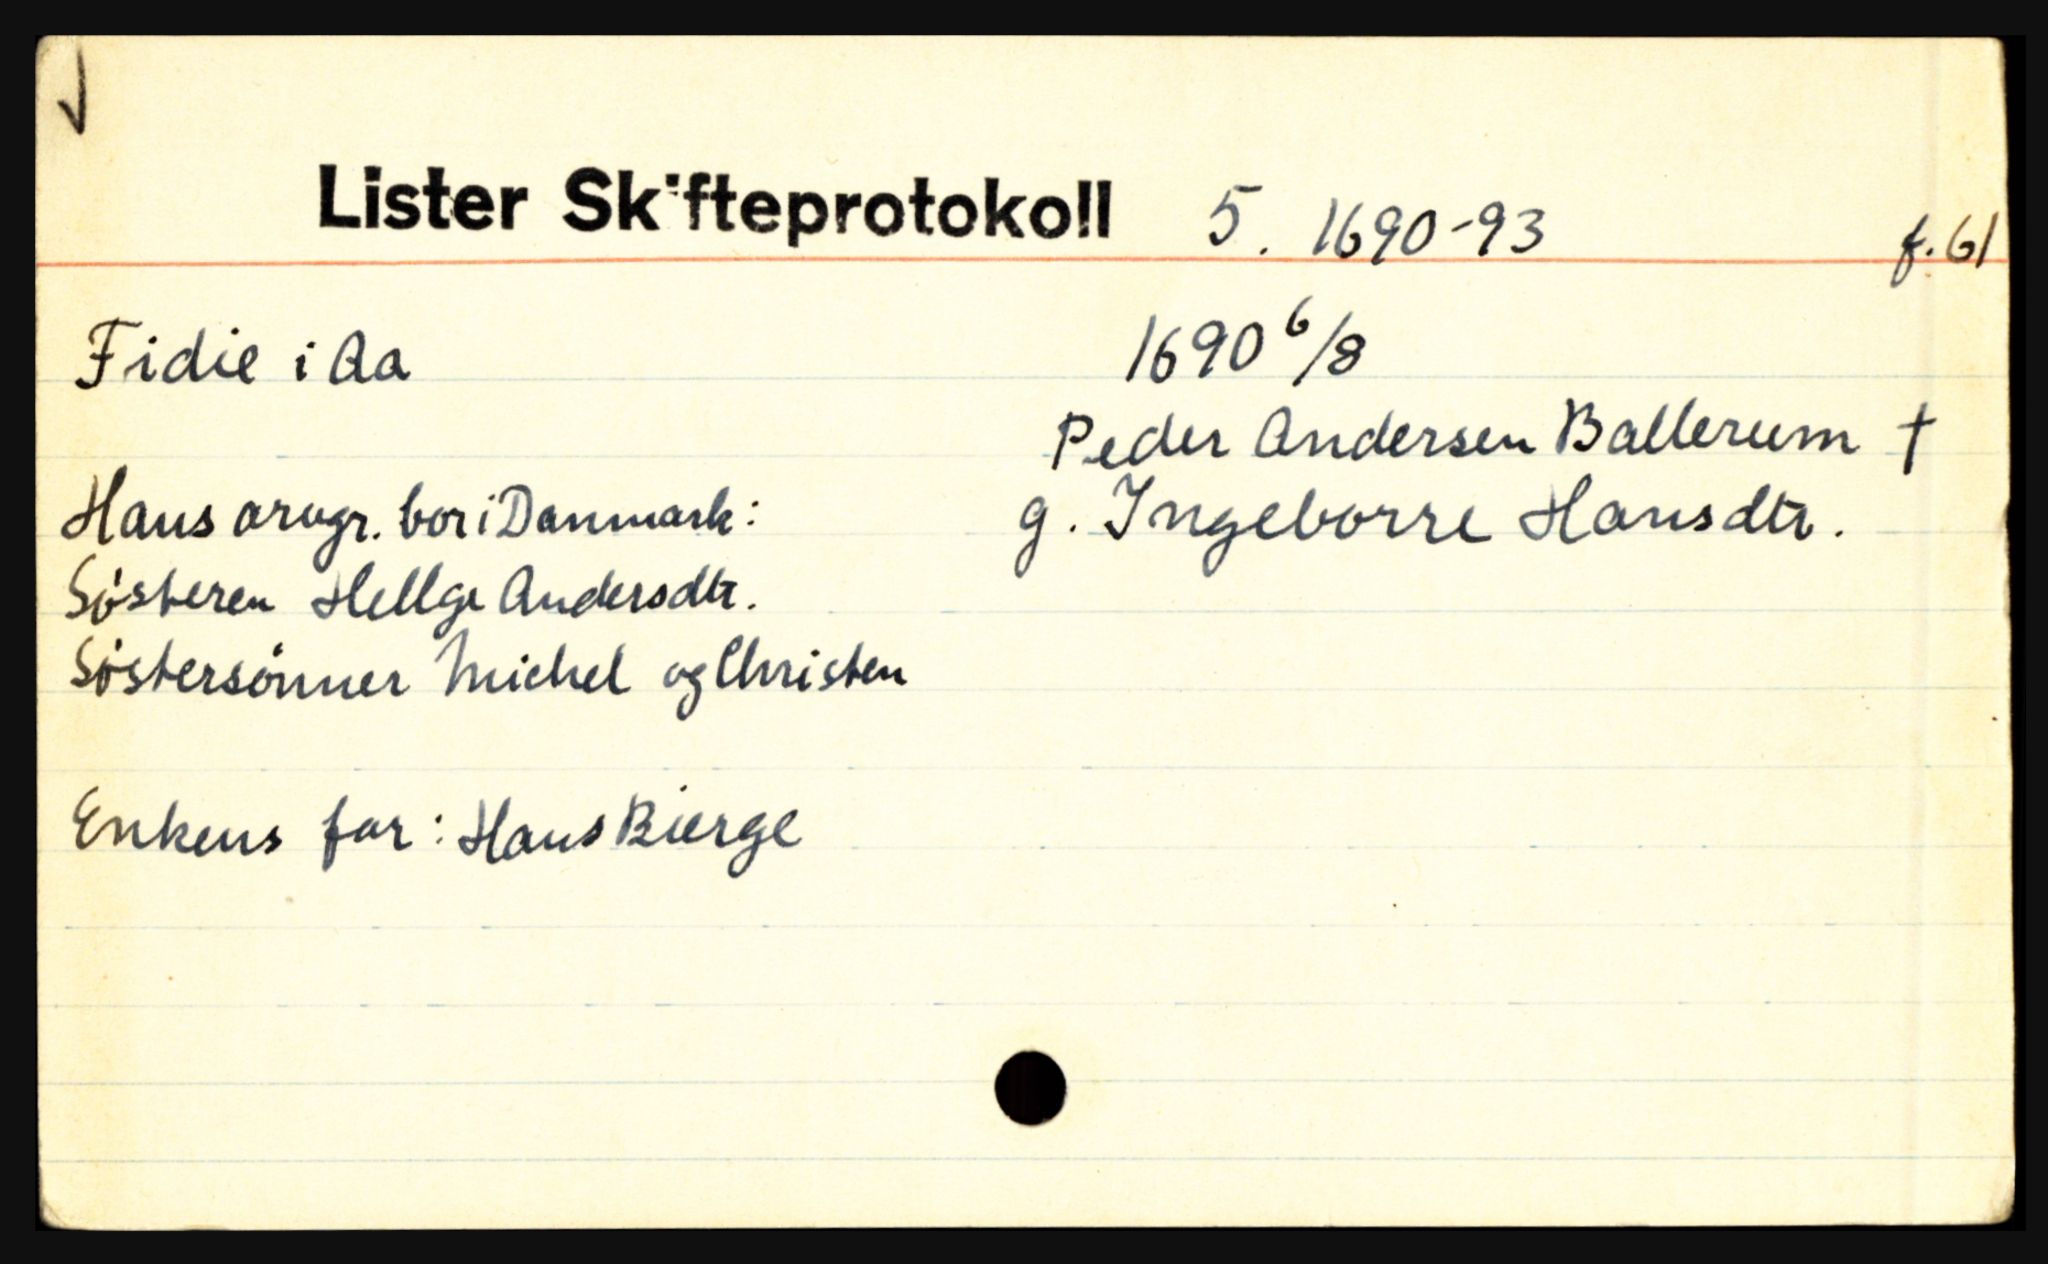 Lister Skifteprotokoll 5. 1690-93 f. 61
Fidie i Aa 1690 6/8
Peder Andersen Ballerum †
Hans arvgr. bor i Danmark: g. Ingeborre Hansdtr.
Søsteren Hellge Andersdtr.
Søstersønner Michel og Christen
Enkens far: Hans Bierge